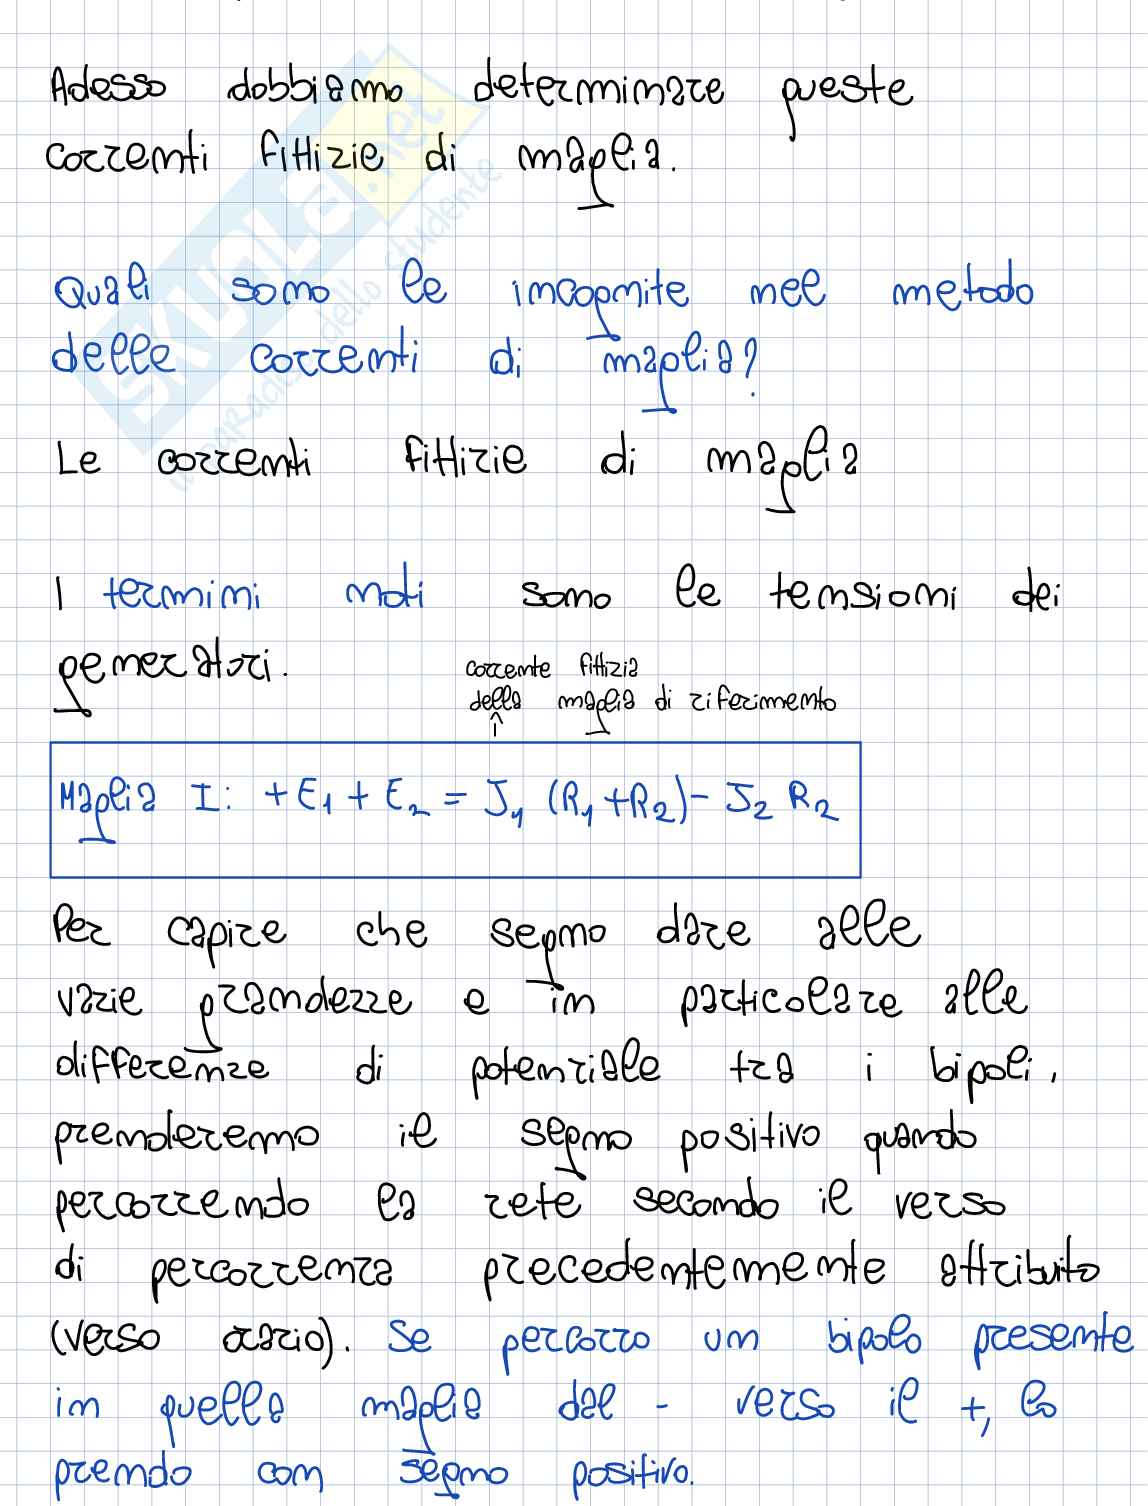 Adesso dobbiamo determinare queste
correnti fittizie di maglia.
Quali sono le incognite nel metodo
delle correnti di maglia?
Le correnti fittizie di maglia
I termini noti sono le tensioni dei
generatori.
corrente fittizia
della maglia di riferimento
Maglia I: +E₁ + E₂ = J₁ (R₁+R₂) - J₂ R₂
Per capire che segno dare alle
varie grandezze e in particolare alle
differenze di potenziale tra i bipoli,
prenderemo il segno positivo quando
percorrendo la rete secondo il verso
di percorrenza precedentemente attribuito
(verso orario). Se percorro un bipolo presente
in quella maglia dal - verso il +, lo
prendo con segno positivo.
SKUOLA.net
il paradiso dello studente